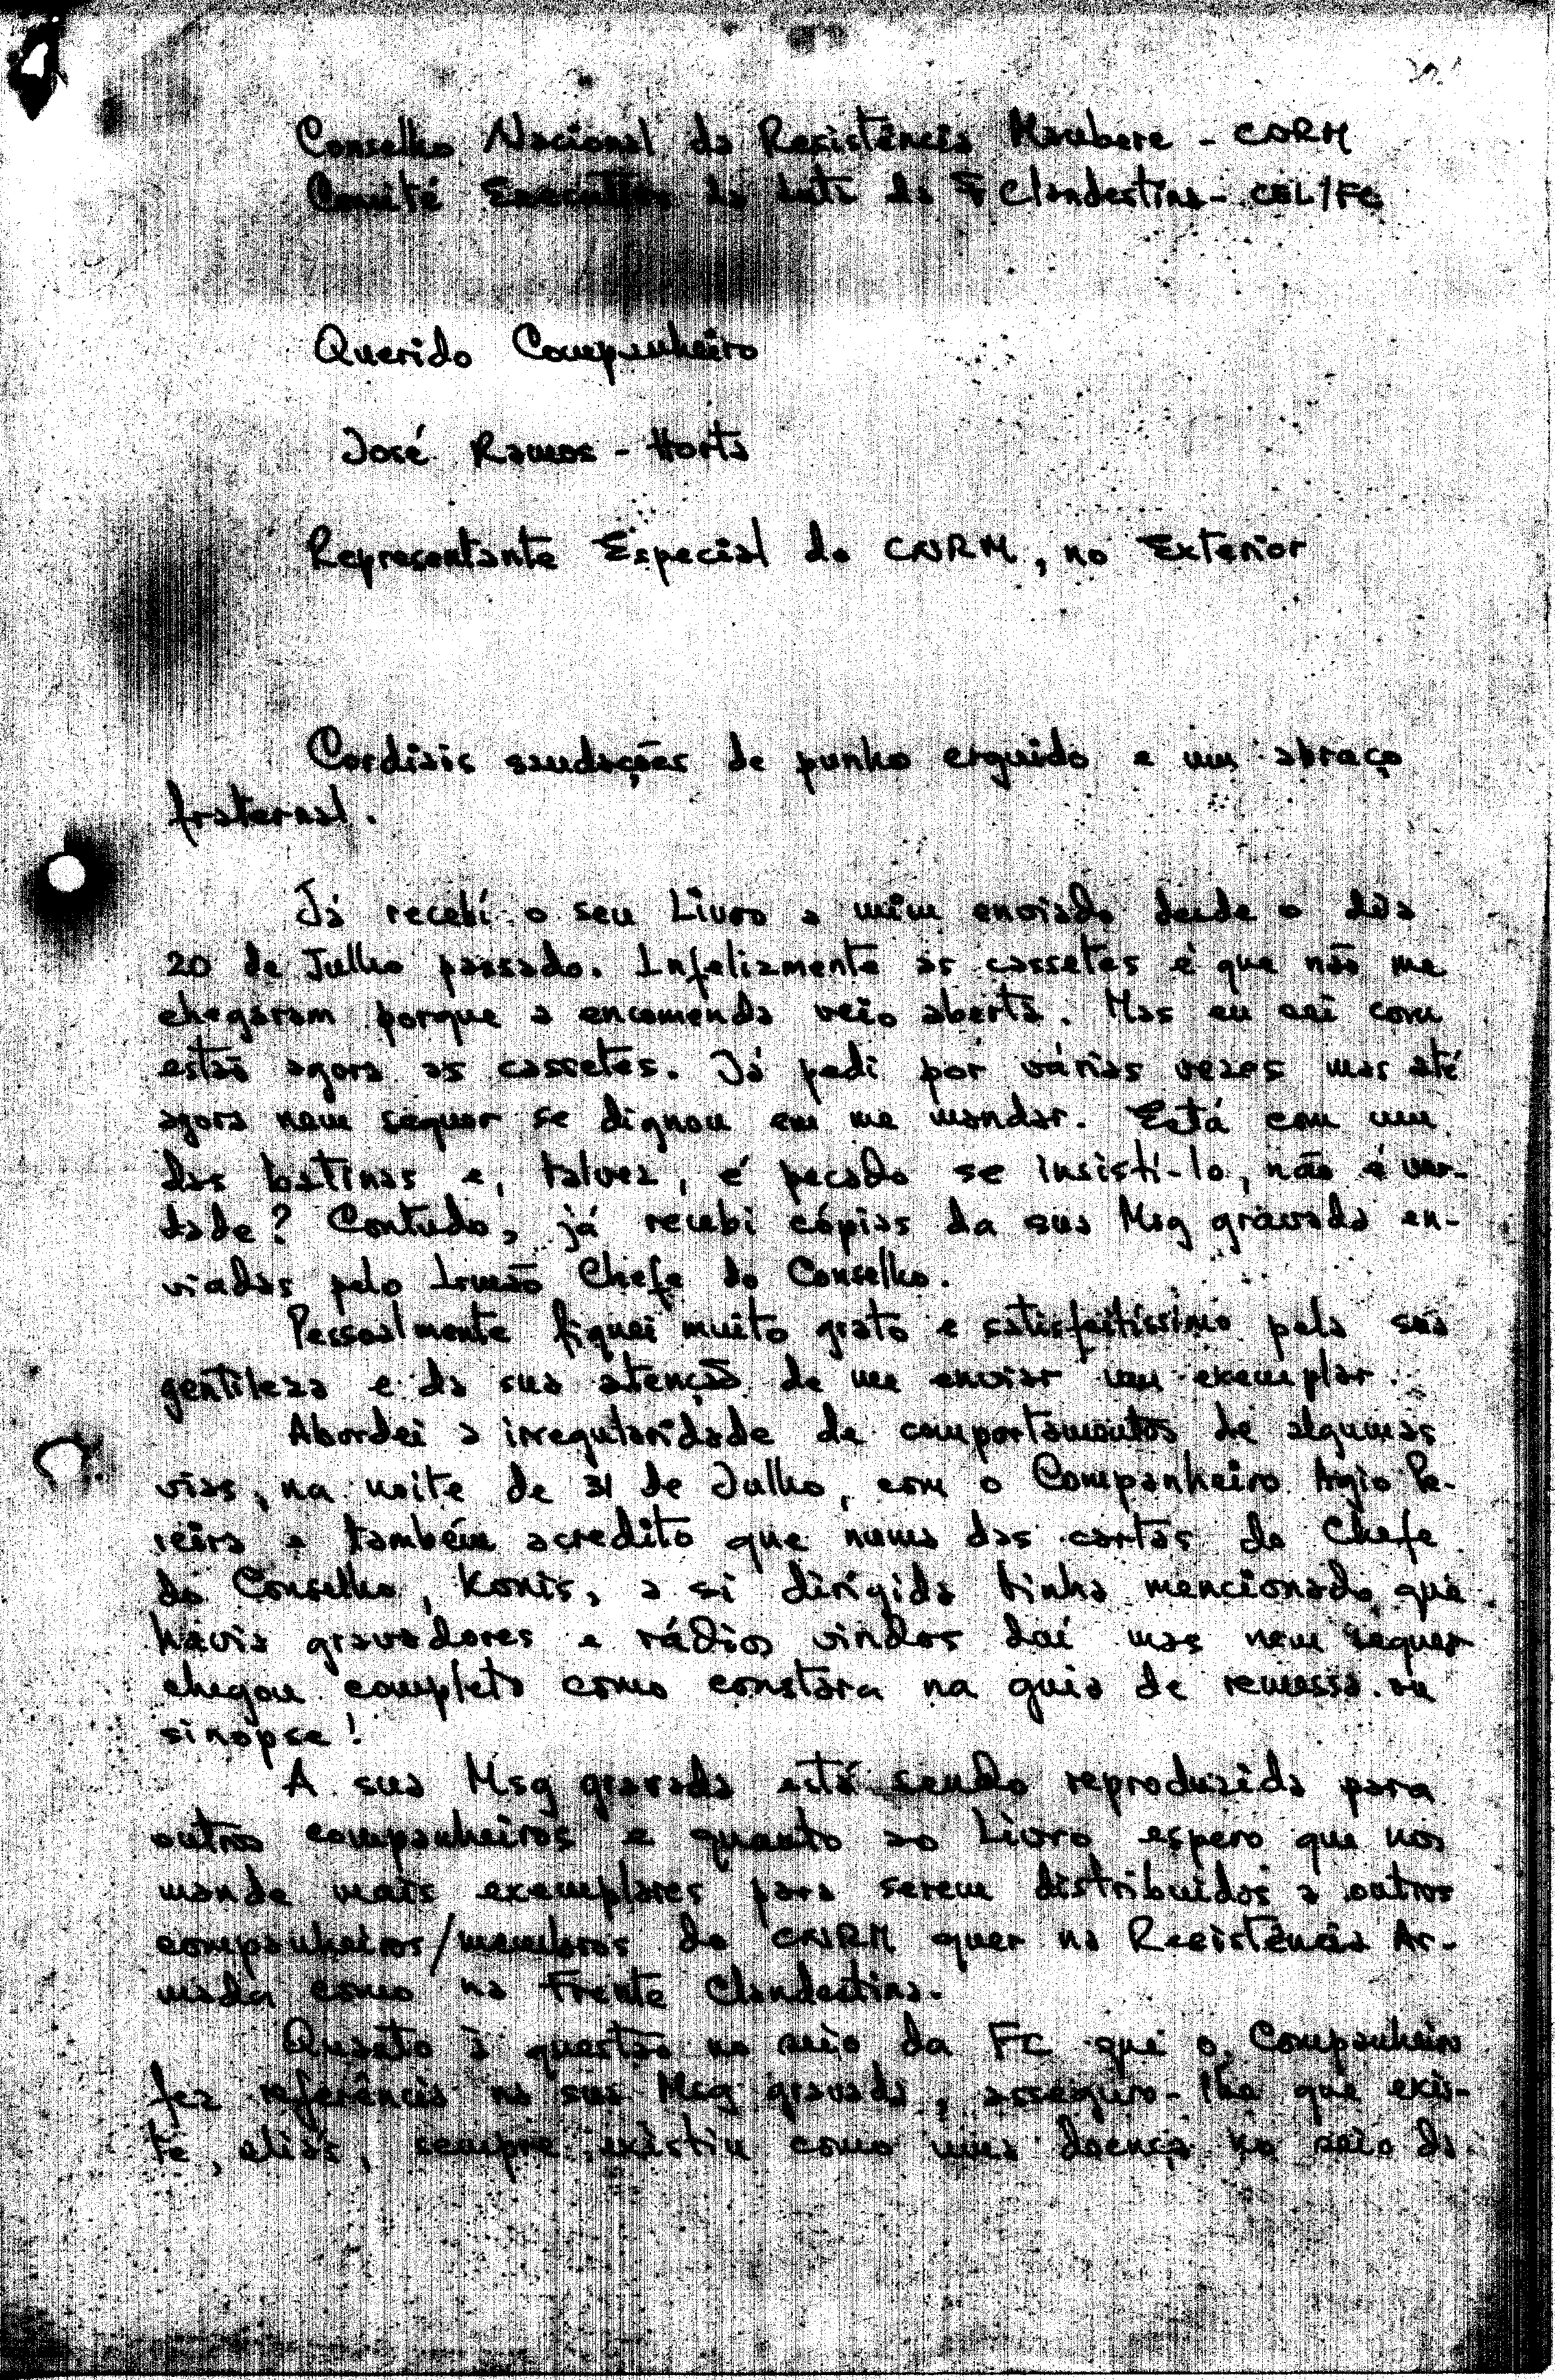 Conselho Nacional da Resistência Maubere - CNRM
Comité Executivo da Luta da F. Clandestina - CEL/FC
Querido Companheiro
José Ramos - Horta
Representante Especial do CNRM, no Exterior
Cordiais saudações de punho erguido e um abraço
fraternal.
Já recebí o seu Livro a mim enviado desde o dia
20 de Julho passado. Infelizmente as cassetes é que não me
chegaram porque a encomenda veio aberta. Mas eu sei com
estão agora as cassetes. Já pedi por várias vezes mas até
agora nem sequer se dignou em me mandar. Está com um
das batinas e, talvez, é pecado se insistí-lo, não é ver-
dade? Contudo, já recebi cópias da sua Msg gravada en-
viadas pelo Irmão Chefe do Conselho.
Pessoalmente fiquei muito grato e satisfeitíssimo pela sua
gentileza e da sua atenção de me enviar um exemplar.
Abordei a irregularidade de comportamentos de algumas
vias, na noite de 31 de Julho, com o Companheiro Agio Pe-
reira e também acredito que numa das cartas do Chefe
do Conselho, Konis, a si dirigida tinha mencionado que
havia gravadores e rádios vindos daí mas nem sequer
chegou completo como constara na guia de remessa ou
sinopse!
A sua Msg gravada está sendo reproduzida para
outros companheiros e quanto ao Livro espero que nos
mande mais exemplares para serem distribuidos a outros
companheiros/membros do CNRM quer na Resistência Ar-
mada como na Frente Clandestina.
Quanto à questão no seio da FC que o Companheiro
fez referência na sua Msg gravada, asseguro-lhe que exis-
te, aliás, sempre existiu como uma doença no seio da